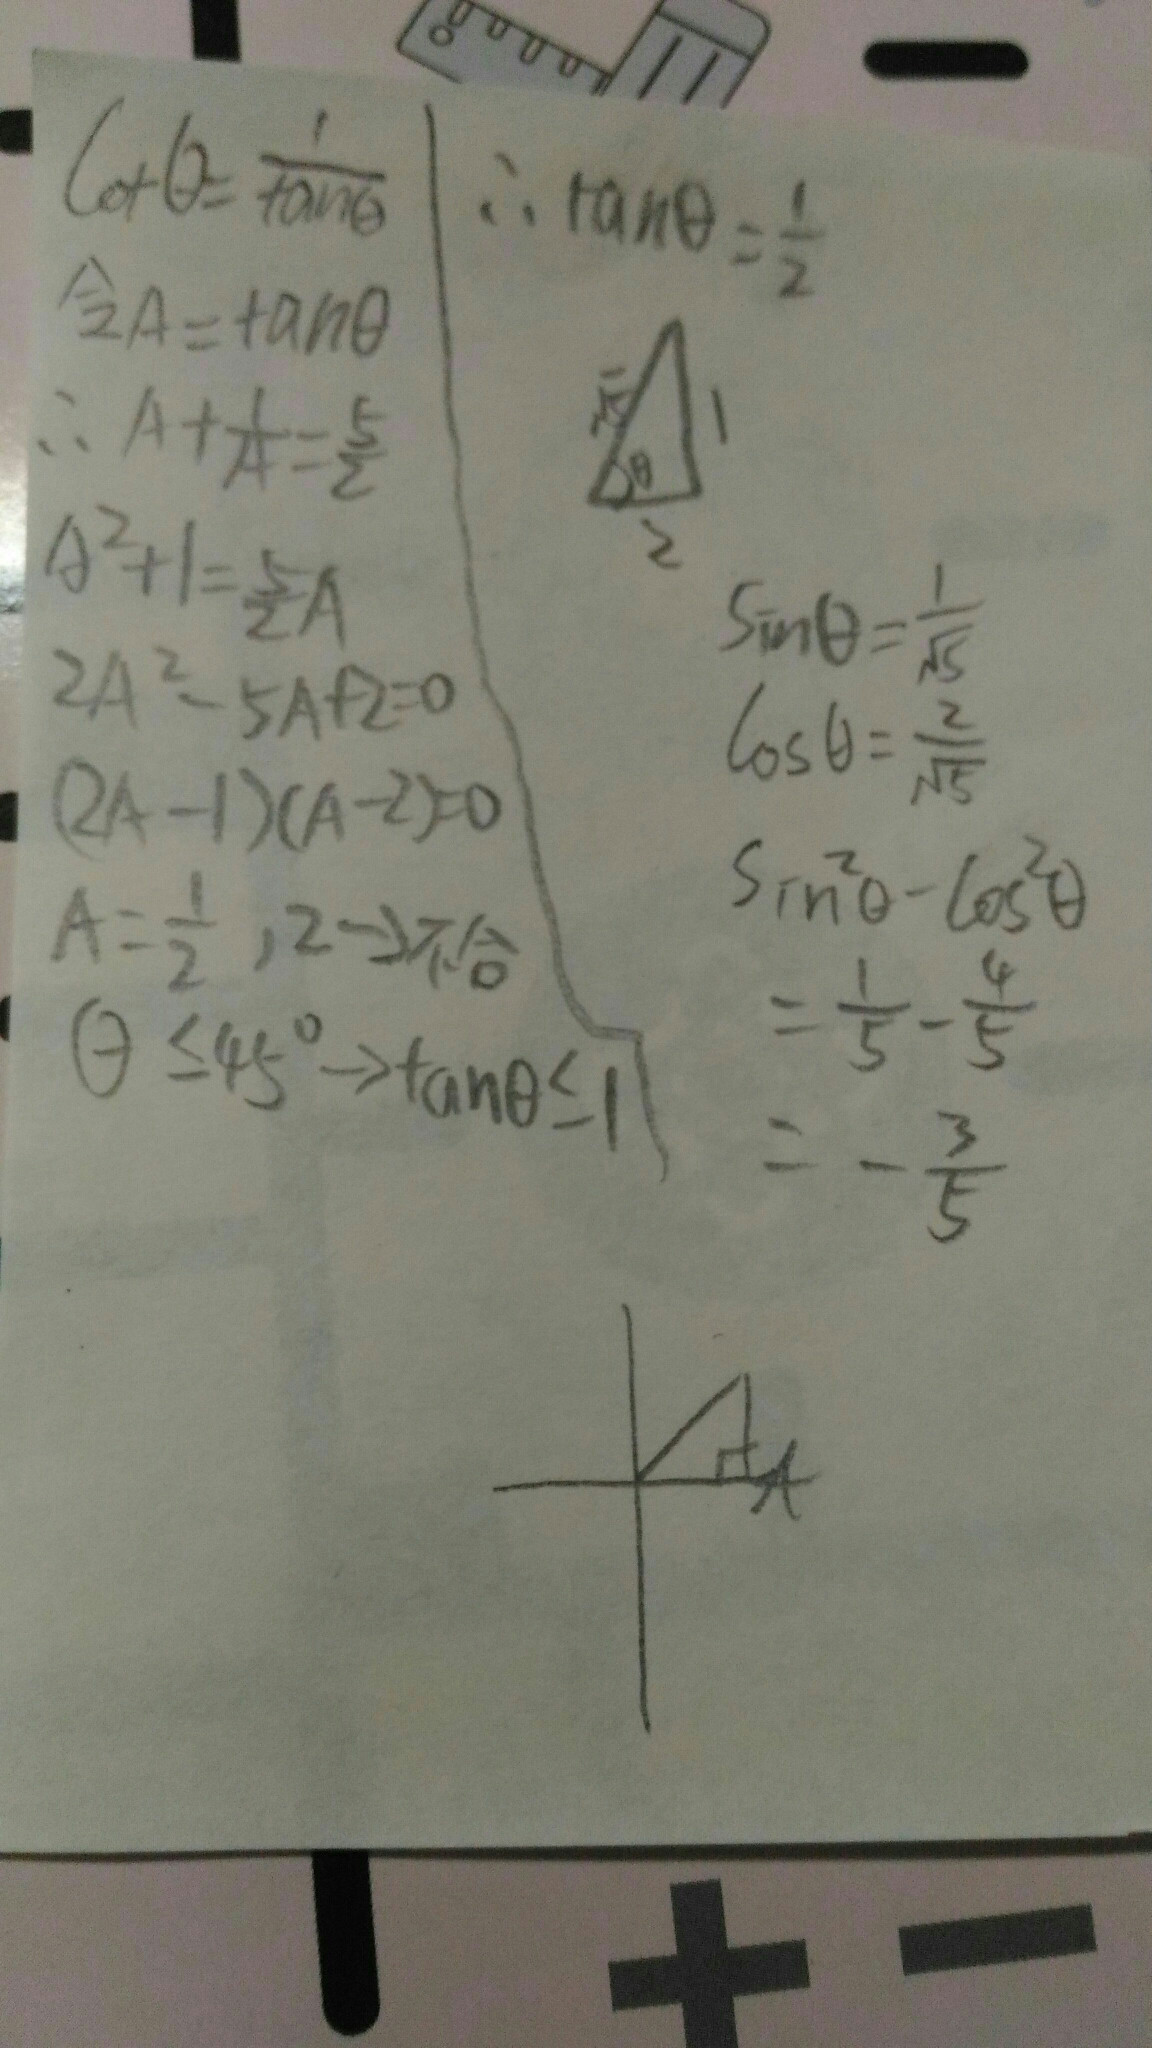 Cotθ = 1/tanθ
令A = tanθ
∴ A + 1/A = 5/2
A²+1 = 5/2 A
2A² - 5A+2=0
(2A-1)(A-2)=0
A = 1/2 , 2 → 不合
θ ≤ 45° → tanθ ≤ 1
∴ tanθ = 1/2
√5
1
θ
2
Sinθ = 1/√5
Cosθ = 2/√5
Sin²θ - Cos²θ
= 1/5 - 4/5
= - 3/5
A